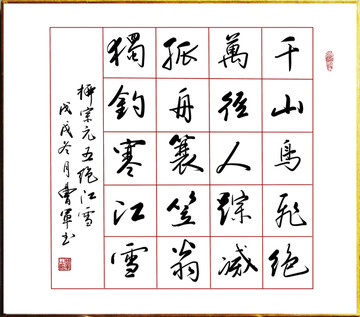 千山鳥飛絶
萬徑人踪滅
孤舟蓑笠翁
獨釣寒江雪
柳宗元五绝江雪
戊戌冬月曹軍书